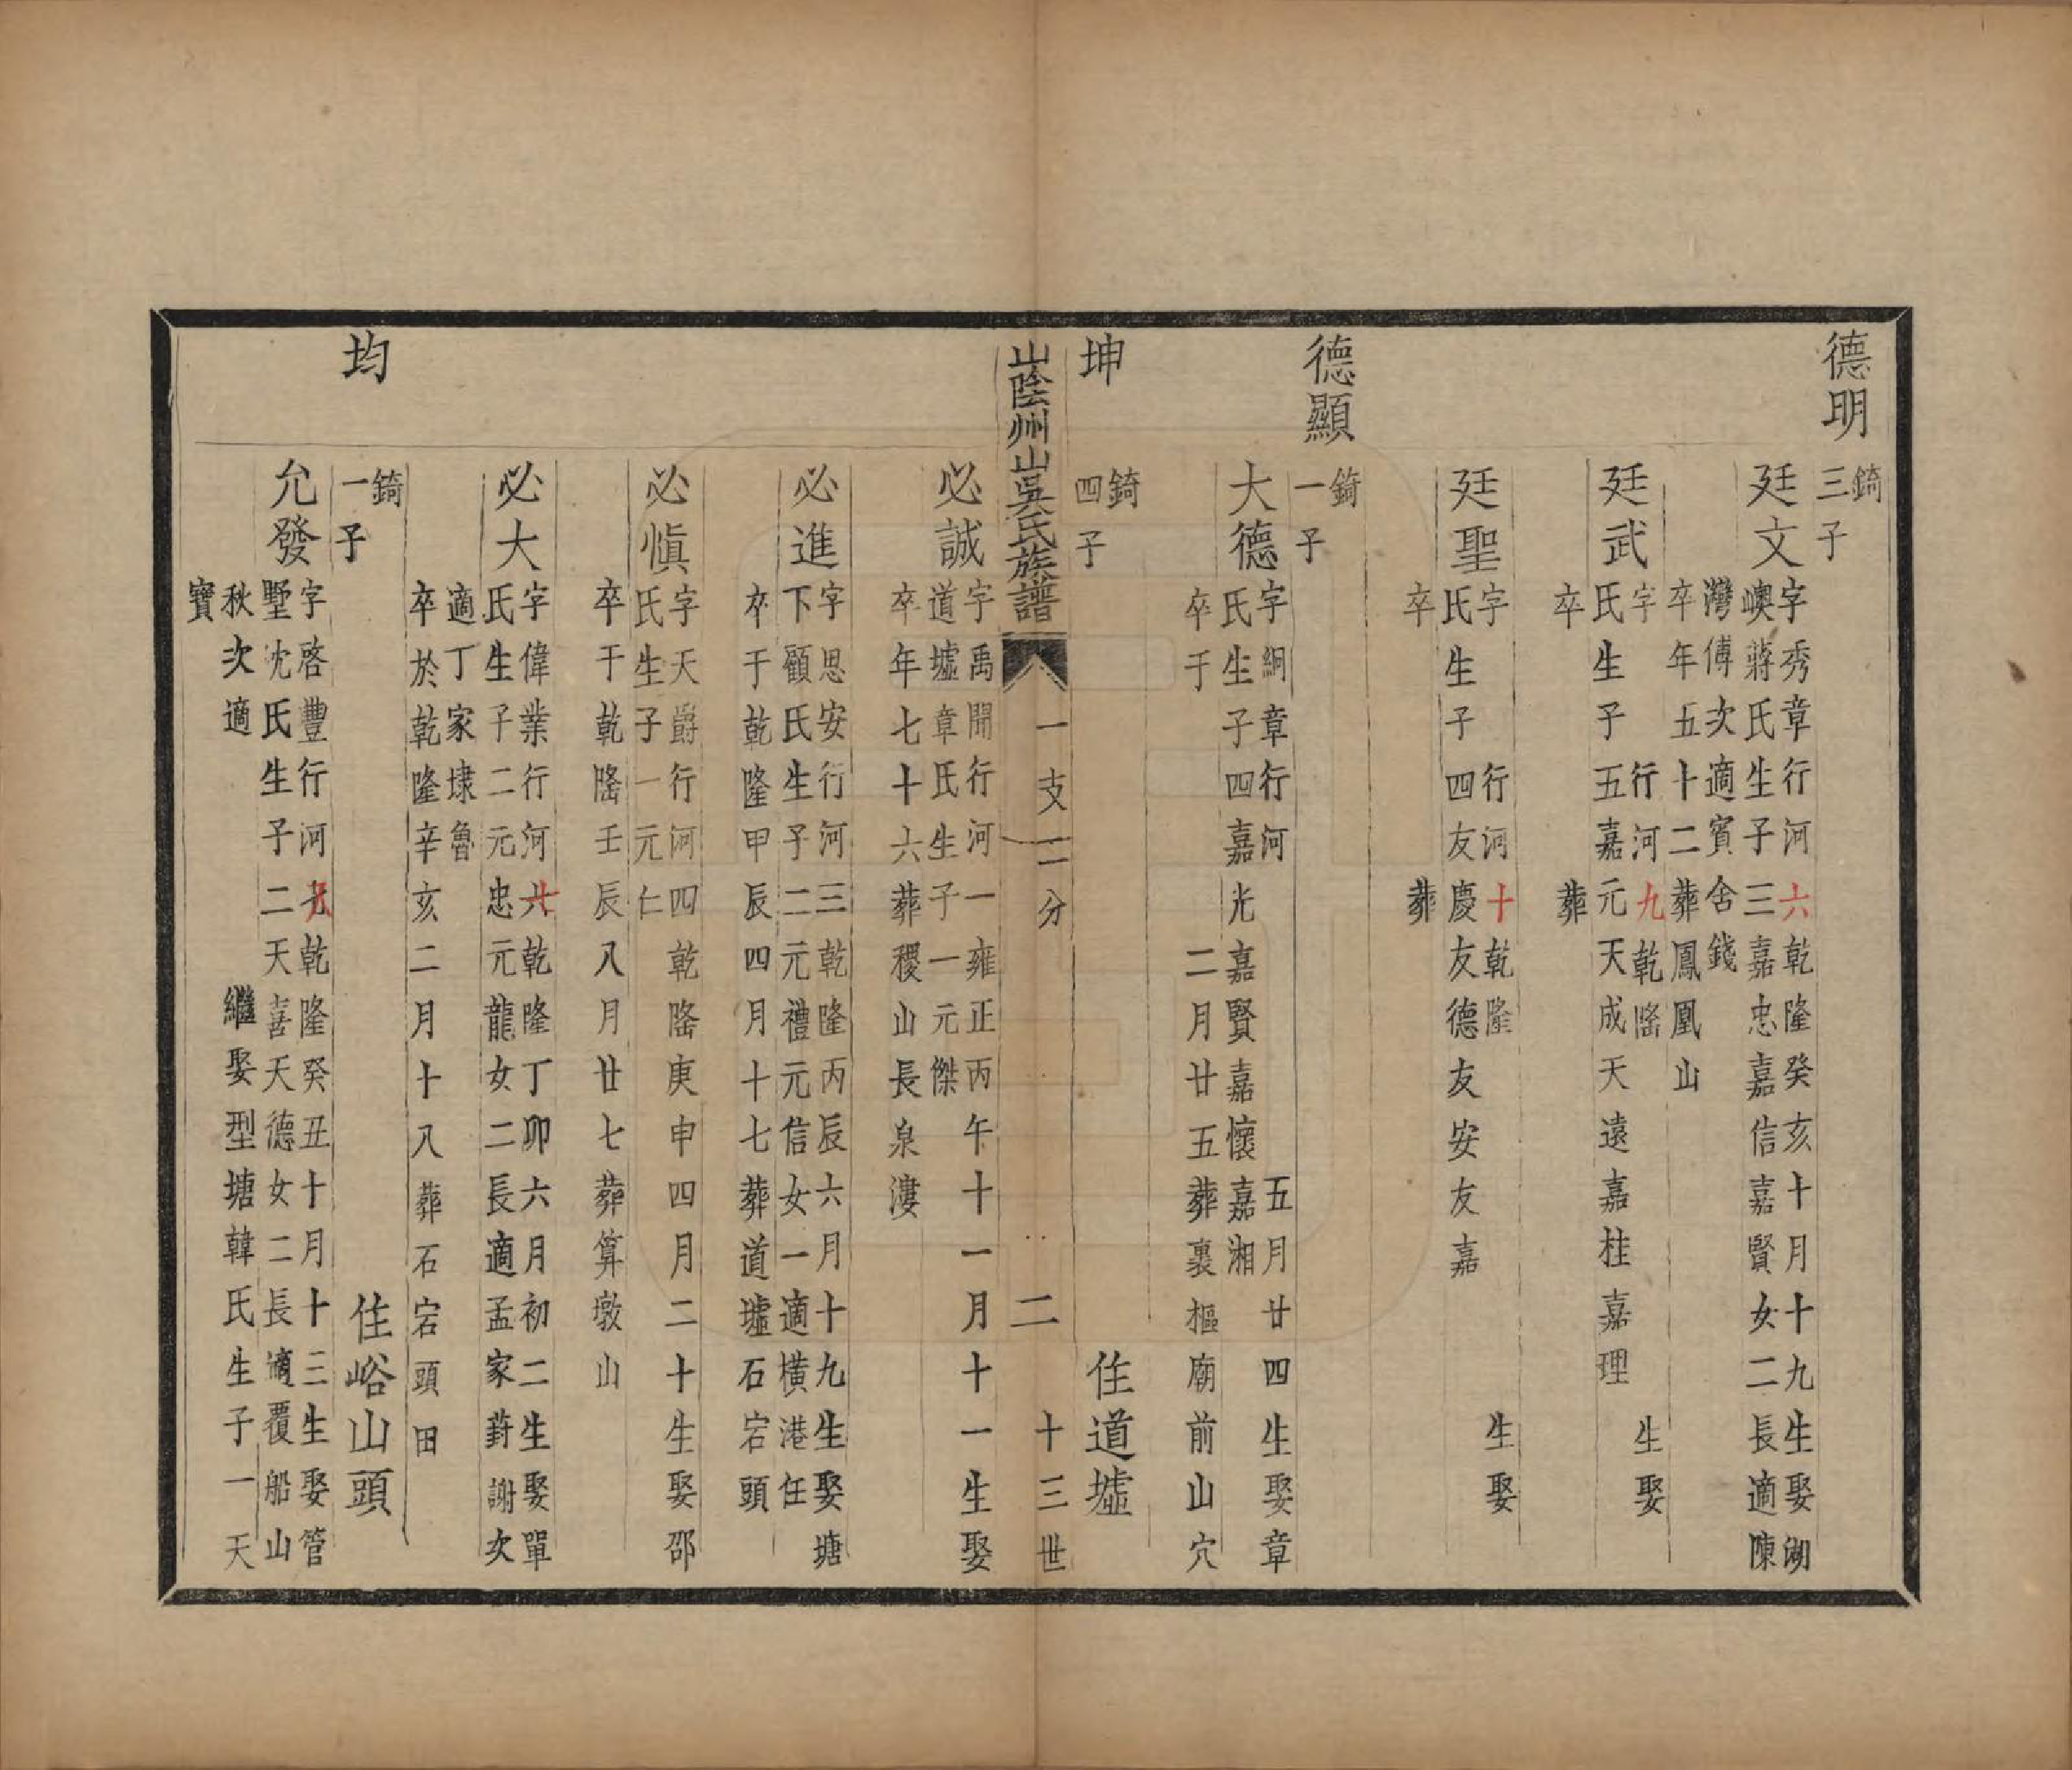 德明
錡
三子
廷文
字秀章行河六乾隆癸亥十月十九生娶湖
嶴蔣氏生子三嘉忠嘉信嘉賢女二長適陳
灣傅次適賓舍錢
卒年五十二葬鳳凰山
廷武
字 行河九乾隆 生娶
氏生子五嘉元天成天遠嘉桂嘉理
卒 葬
廷聖
字 行河十乾隆 生娶
氏生子四友慶友德友安友嘉
卒 葬
德顯
錡
一子
大德
字絅章行河 五月廿四生娶章
氏生子四嘉光嘉賢嘉懷嘉湘
卒于 二月廿五葬裏樞廟前山穴
坤
錡
四子 住道墟
山陰州山吳氏族譜 一支二分 二 十三世
必誠
字禹開行河一雍正丙午十一月十一生娶
道墟章氏生子一元傑
卒年七十六葬稷山長泉漊
必進
字思安行河三乾隆丙辰六月十九生娶塘
下顧氏生子二元禮元信女一適橫港任
卒于乾隆甲辰四月十七葬道墟石宕頭
必慎
字天爵行河四乾隆庚申四月二十生娶邵
氏生子一元仁
卒于乾隆壬辰八月廿七葬算墩山
必大
字偉業行河 乾隆丁卯六月初二生娶單
氏生子二元忠元龍女二長適孟家葑謝次
適丁家埭魯
卒於乾隆辛亥二月十八葬石宕頭田
均
錡
一子 住峪山頭
允發
字啓豐行河 乾隆癸丑十月十三生娶管
墅沈氏生子二天喜天德女二長適覆船山
秋次適 繼娶型塘韓氏生子一天
寶